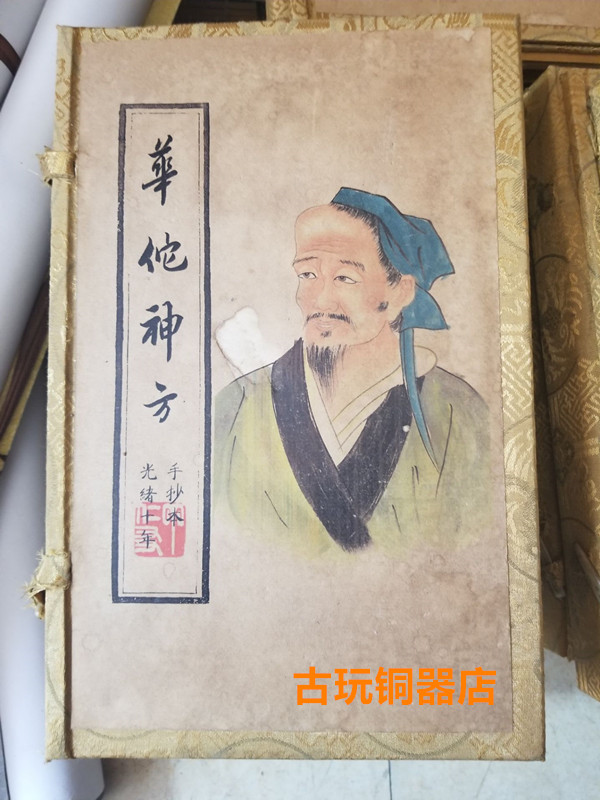 華佗神方
手抄本
光绪十年
古玩铜器店